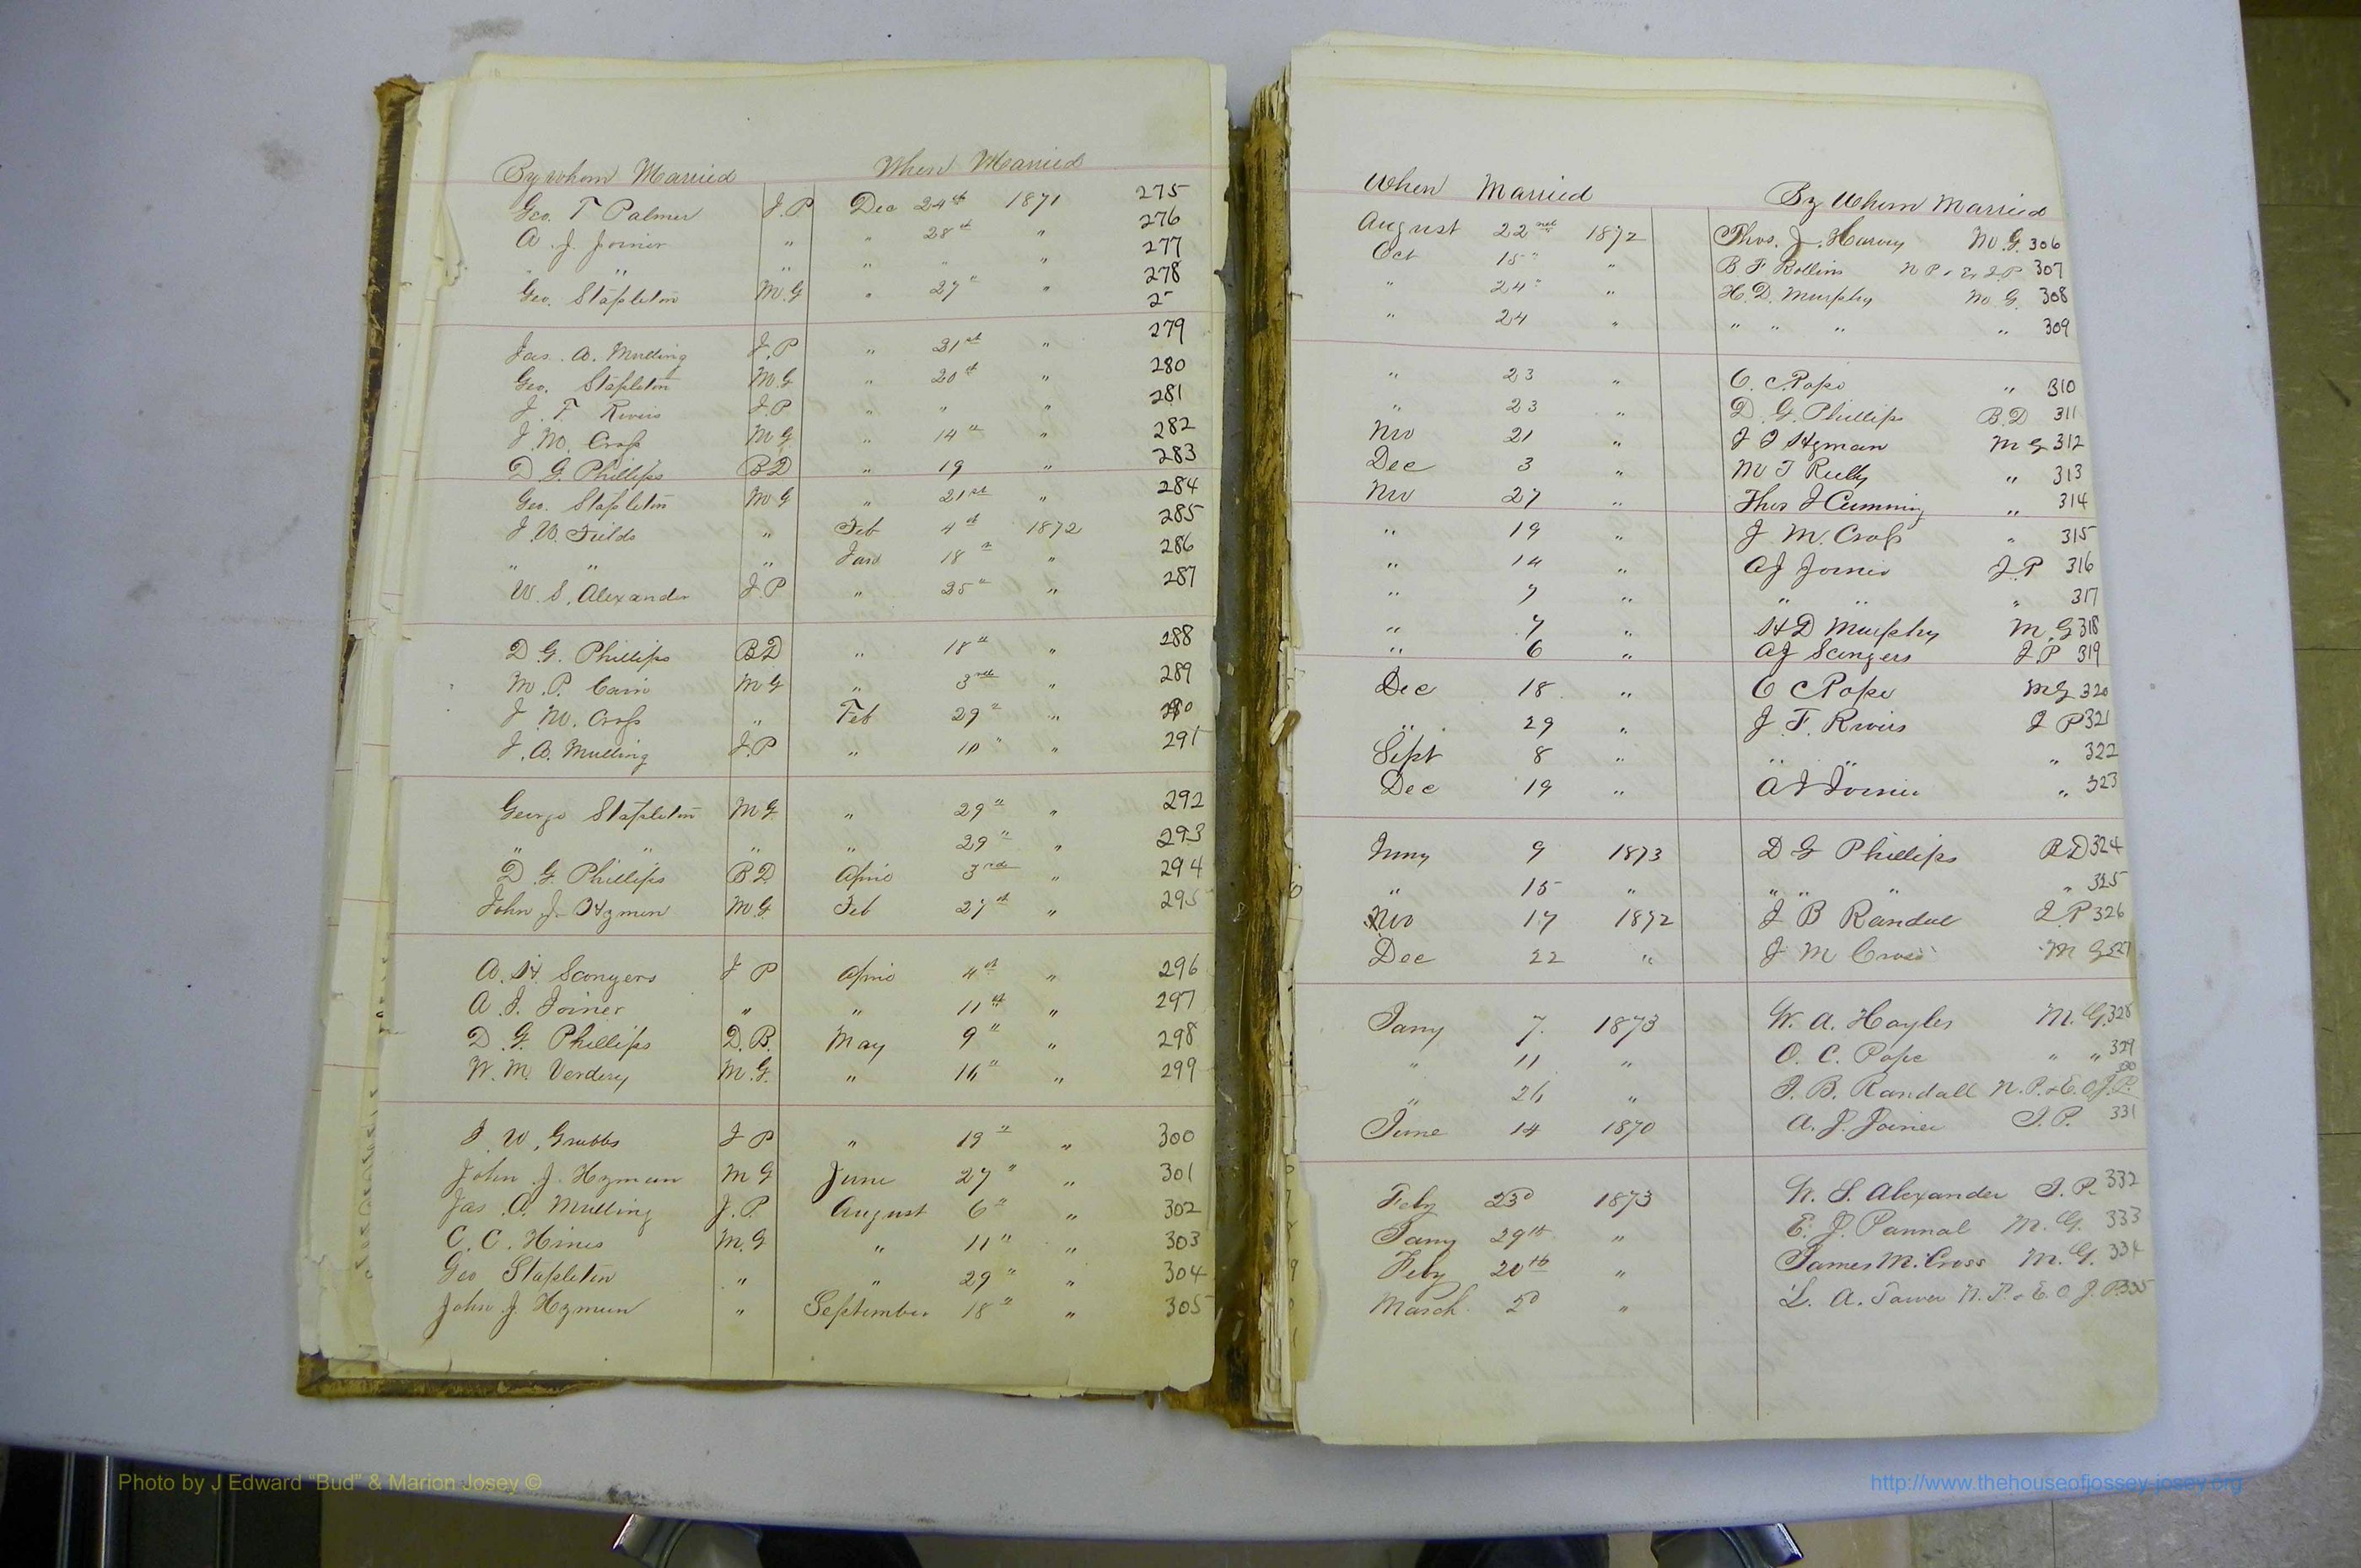 By whom Married When Married
Geo. T Palmer J.P Dec 24th 1871 275
A. J. Joiner " " 28th " 276
" " " " " " 277
Geo. Stapleton M.G " 27" " 278
2
Jas. A. Mulling J.P " 31st " 279
Geo. Stapleton M.G " 20th " 280
J. F. Rivers J.P " " " 281
J. M. Cross M G " 14th " 282
D. G. Phillips BD " 19 " 283
Geo. Stapleton M G " 21st " 284
J. W. Fields " Feb 4th 1872 285
" " " Jan 18th " 286
W. S. Alexander J.P " 25th " 287
D. G. Phillips BD " 18th " 288
M. P. Cain M G " 3rd " 289
J. M. Cross " Feb 29th " 290
J. A. Mulling J.P " 10" " 291
George Stapleton M G. " 29th " 292
" " " " 29" " 293
D. G. Phillips B D. April 3rd " 294
John J. Hyman M.G Feb 27th " 295
A. H. Scongers J P April 4th " 296
A. J. Joiner " " 11th " 297
D. G. Phillips D. B. May 9" " 298
W. M. Verdery M.G. " 16" " 299
J. W. Grubbs J P " 19" " 300
John J. Hyman M G June 27" " 301
Jas. A. Mulling J. P. August 6" " 302
C. C. Hines M. G " 11" " 303
Geo Stapleton " " 29" " 304
John J. Hyman " September 18" " 305
When Married By Whom Married
August 22nd 1872 Thos. J. Harvey M. G. 306
Oct 15" " B. F. Rollins N P. & Ex J.P. 307
" 24" " H. D. Murphy M G. 308
" 24 " " " " " 309
" 23 " O. C. Pope " 310
" 23 " D. G. Phillips B.D 311
Nov 21 " J J Hyman M G 312
Dec 3 " M T " 313
Nov 27 " Thos J Cumming " 314
" 19 " J. M. Cross " 315
" 14 " A J Joiner J. P 316
" 7 " " " " 317
" 7 " H D Murphy M. G 318
" 6 " A J Scongers J P 319
Dec 18 " O C Pope M G 320
" 29 " J. F. Rivers J P 321
Sept 8 " " " " 322
Dec 19 " A J Joiner " 323
Jany 9 1873 D G Phillips B D 324
" 15 " " " " " 325
Nov 17 1872 J B Randal J. P 326
Dec 22 " J M Cross M G 327
Jany 7. 1873 W. A. Hayles M. G. 328
" 11 " O. C. Pope " " 329
330
" 26 " J. B. Randall N. P. & E. O J. P.
June 14 1870 A. J. Joiner J. P. 331
Feby 23d 1873 W. S. Alexander J. P. 332
Jany 29th " E. J. Pannal M. G. 333
Feby 20th " James M. Cross M. G. 334
March 2d " L. A. Tower N. P. & E. O J. P. 335
Photo by J Edward "Bud" & Marion Josey ©
http://www.thehouseofjossey-josey.org